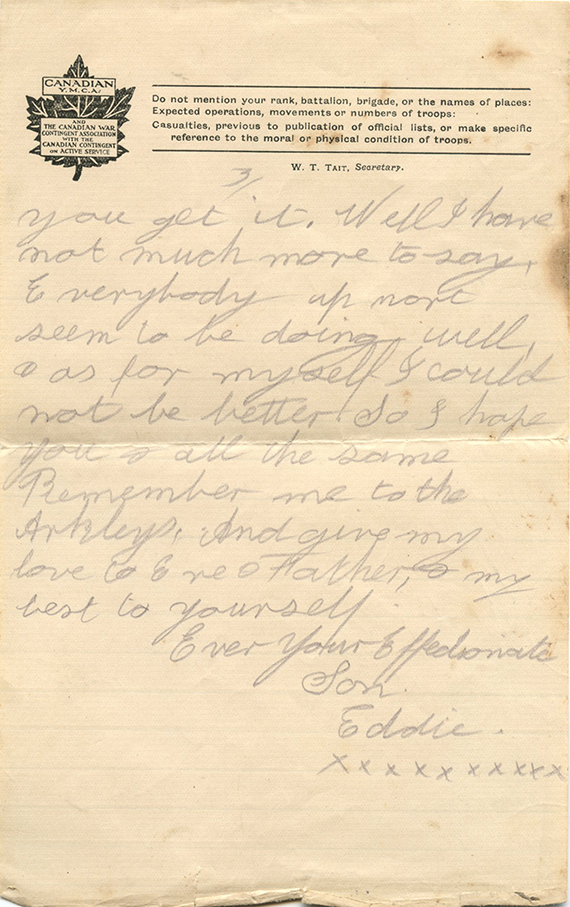 CANADIAN
Y.M.C.A.
AND
THE CANADIAN WAR
CONTINGENT ASSOCIATION
WITH THE
CANADIAN CONTINGENT
ON ACTIVE SERVICE
Do not mention your rank, battalion, brigade, or the names of places:
Expected operations, movements or numbers of troops:
Casualties, previous to publication of official lists, or make specific
reference to the moral or physical condition of troops.
W. T. TAIT, Secretary.
3/
you get it. Well I have
not much more to say,
Everybody up nort
seem to be doing well,
& as for myself I could
not be better So I hope
you & all the same
Remember me to the
Arkleys, And give my
love to Eve & Father, & my
best to yourself.
Ever Your Effectionate
Son
Eddie.
x x x x x x x x x x x